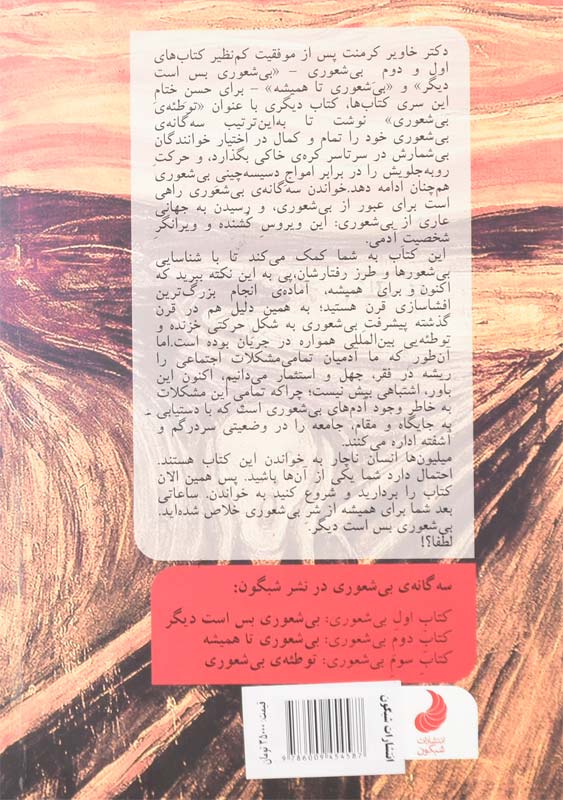 دکتر خاویر کرمنت پس از موفقیت کم‌نظیر کتاب‌های
اول و دوم بی‌شعوری – «بی‌شعوری بس است
دیگر» و «بی‌شعوری تا همیشه» – برای حسن ختام
این سری کتاب‌ها، کتاب دیگری با عنوان «توطئه‌ی
بی‌شعوری» نوشت تا به‌این‌ترتیب سه‌گانه‌ی
بی‌شعوری خود را تمام و کمال در اختیار خوانندگان
بی‌شمارش در سرتاسر کره‌ی خاکی بگذارد، و حرکت
روبه‌جلویش را در برابر امواج دسیسه‌چینی بی‌شعوری
هم‌چنان ادامه دهد.خواندن سه‌گانه‌ی بی‌شعوری راهی
است برای عبور از بی‌شعوری، و رسیدن به جهانی
عاری از بی‌شعوری: این ویروسِ کُشنده و ویرانگرِ
شخصیت آدمی.
این کتاب به شما کمک می‌کند تا با شناسایی
بی‌شعورها و طرز رفتارشان،پی به این نکته ببرید که
اکنون و برای همیشه، آماده‌ی انجام بزرگ‌ترین
افشاسازی قرن هستید؛ به همین دلیل هم در قرن
گذشته پیشرفت بی‌شعوری به شکل حرکتی خزنده و
توطئه‌یی بین‌المللی همواره در جریان بوده است.اما
آن‌طور که ما آدمیان تمامی‌مشکلات اجتماعی را
ریشه در فقر، جهل و استثمار می‌دانیم، اکنون این
باور، اشتباهی بیش نیست؛ چراکه تمامی این مشکلات
به خاطر وجود آدم‌های بی‌شعوری است که با دستیابی
به جایگاه و مقام، جامعه را در وضعیتی سردرگم و
آشفته اداره می‌کنند.
میلیون‌ها انسان ناچار به خواندن این کتاب هستند.
احتمال دارد شما یکی از آن‌ها باشید. پس همین الان
کتاب را بردارید و شروع کنید به خواندن. ساعاتی
بعد شما برای همیشه از شر بی‌شعوری خلاص شده‌اید.
بی‌شعوری بس است دیگر.
لطفا؟!
سه‌گانه‌ی بی‌شعوری در نشر شبگون:
کتابِ اول بی‌شعوری: بی‌شعوری بس است دیگر
کتابِ دوم بی‌شعوری: بی‌شعوری تا همیشه
کتابِ سوم بی‌شعوری: توطئه‌ی بی‌شعوری
انتشارات
شبگون
انتشارات شبگون
9 786009 454587
قیمت: ۳۵۰۰۰ تومان